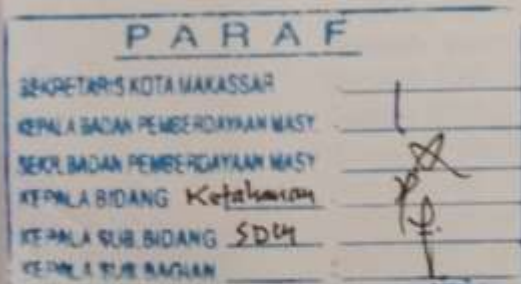 PARAF
SEKRETARIS KOTA MAKASSAR
KEPALA BADAN PEMBERDAYAAN MASY
SEKR. BADAN PEMBERDAYAAN MASY
KEPALA BIDANG Ketahanan
KEPALA SUB. BIDANG SDM
KEPALA SUB BAGIAN